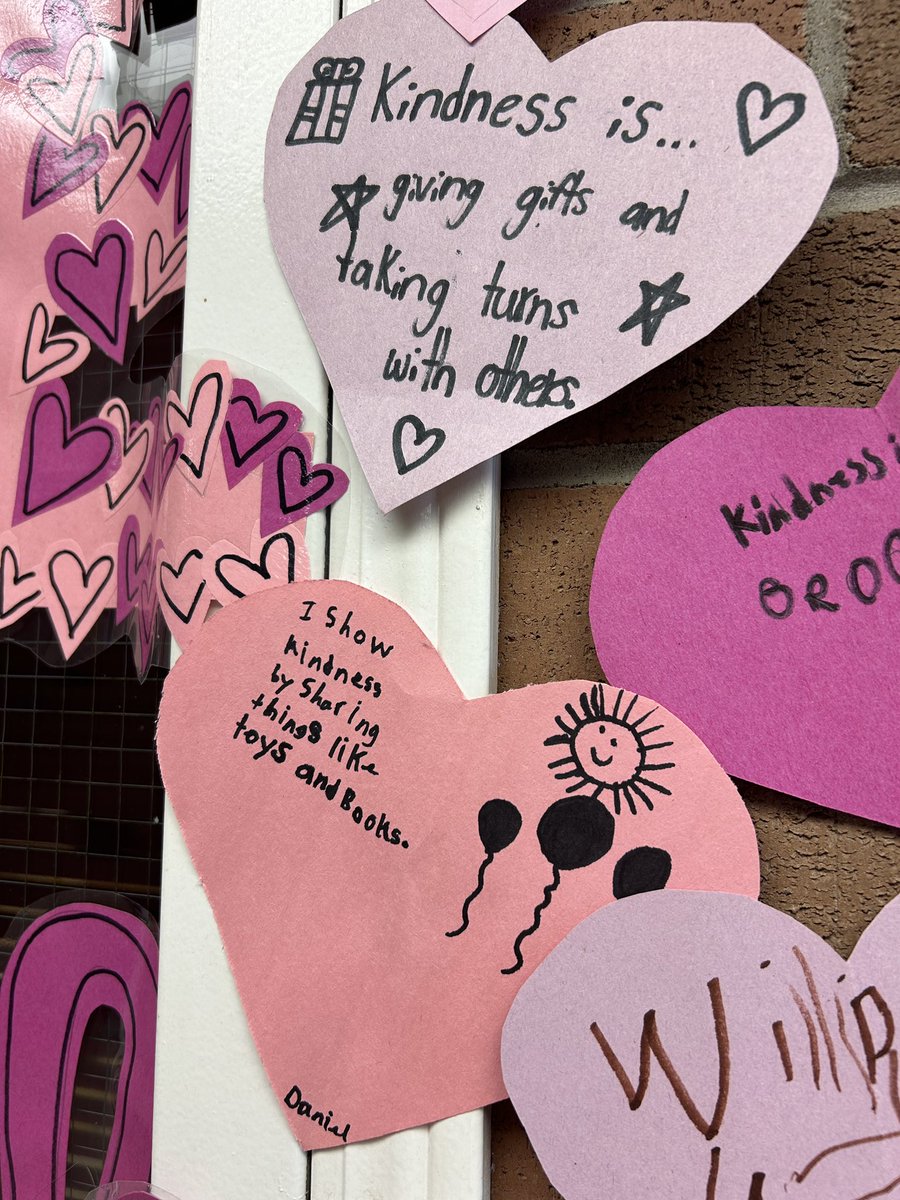 Kindness is...
giving gifts and
taking turns
with others.
Kindness
I Show
kindness
by Sharing
things like
toys and Books.
Daniel